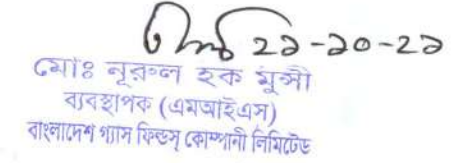 ২১-১০-২১
মোঃ নূরুল হক মুন্সী
ব্যবস্থাপক (এমআইএস)
বাংলাদেশ গ্যাস ফিল্ডস্ কোম্পানী লিমিটেড